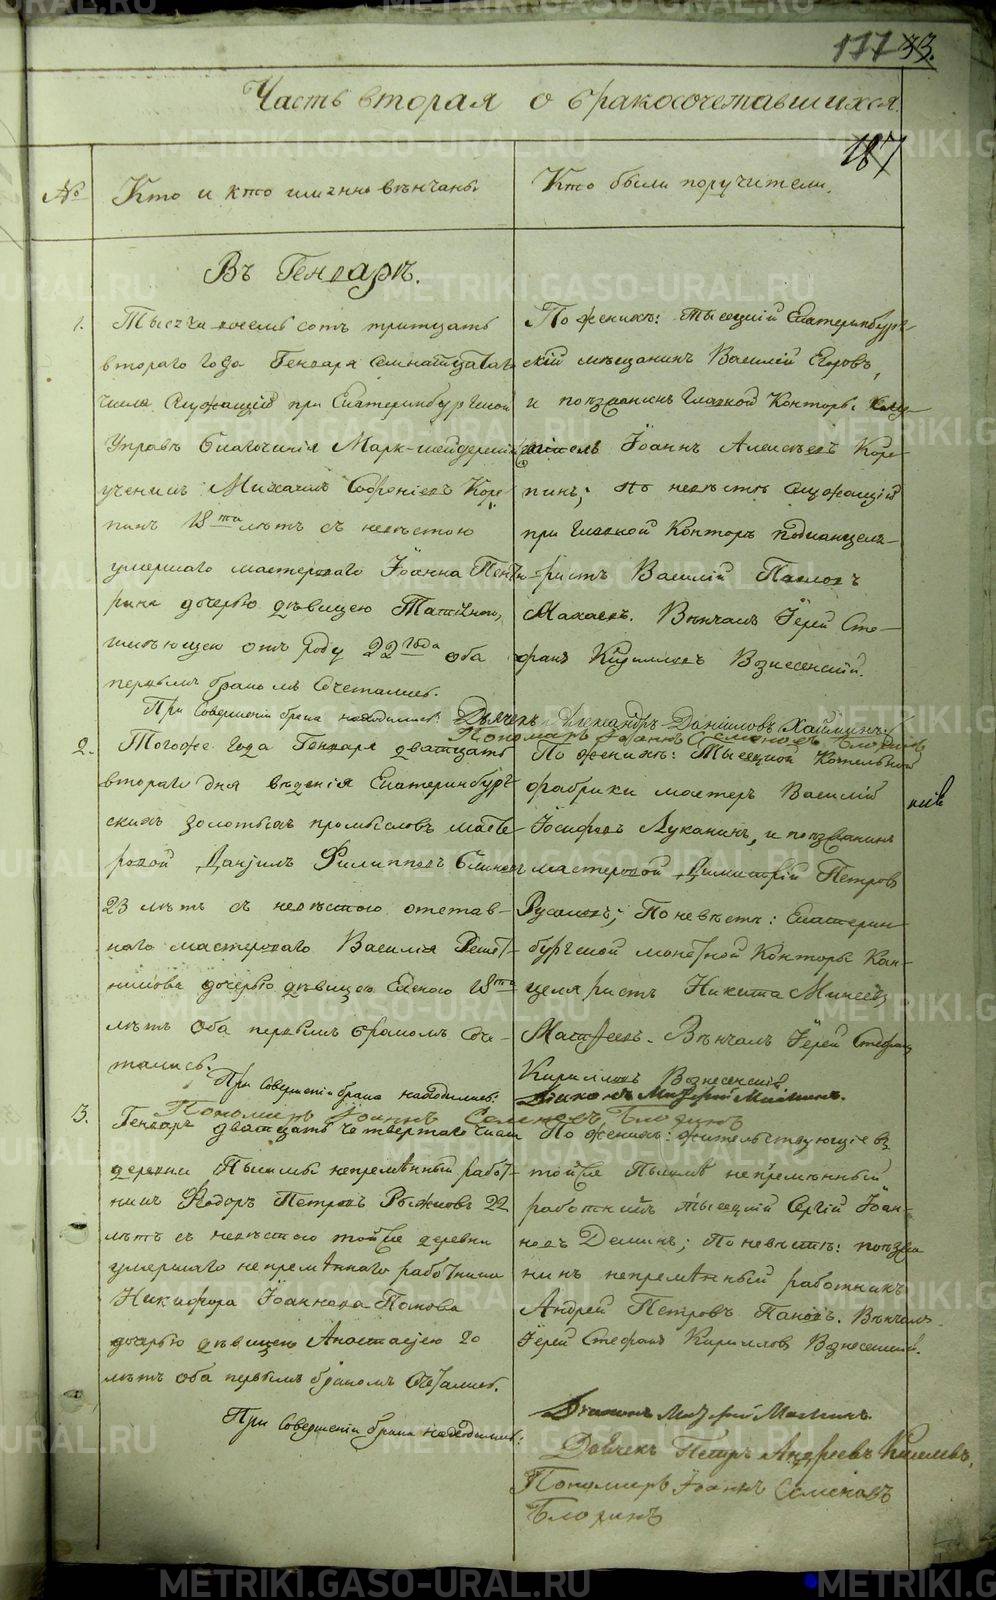 177 33.
Часть вторая о бракосочетавшихся.
187
№
Кто и кто имянно вѣнчаны.
Кто были поручители.
Въ Генварѣ.
1.
Тысеча восемь сотъ тритцать
втораго года Генваря семнатцатаго
числа Служащій при Екатеринбургской
Управѣ благочинія Маркшейдерскій
ученикъ Михаилъ Софоніевъ Коре-
пинъ 18ти лѣтъ съ невѣстою
умершаго мастероваго Іоанна
дочерью дѣвицею Татіаною,
имѣющею отъ роду 22 года оба
первымъ бракомъ Сочетались.
При Совершеніи брака находились:
По женихѣ: Тысецкій Екатеринбург-
скій мѣщанинъ Василій Егоровъ,
и поѣзжанинъ Главной Конторы
Іоаннъ Алексѣевъ Коре-
пинъ; по невѣстѣ Служащій
при Главной Конторѣ подканцеля-
ристъ Василій Павловъ
Махаевъ. Вѣнчалъ Іерей Сте-
фанъ Кириловъ Вознесенскій.
Дьячекъ Александръ Даниловъ Хаймин
Пономарь Іоаннъ Семеновъ Блохинъ
2.
Тогоже года Генваря дватцать
втораго дня вѣденія Екатеринбург-
скихъ золотыхъ промысловъ масте-
ровой Даніилъ Филипповъ Блиновъ
23 лѣтъ съ невѣстою отстав-
наго мастероваго Василія Решет-
никова дочерью дѣвицею Еленою 18ти
лѣтъ оба первымъ бракомъ Соче-
тались.
При Совершеніи брака находились:
По женихѣ: Тысецкой Котельной
фабрики мастеръ Василій
Іосифовъ Луканинъ, и поѣзжанинъ
мастеровой Димитрій Петровъ
Русановъ; По невѣстѣ: Екатерин-
бургской монетной Конторы Кан-
целяристъ Никита Минеевъ
Матѳеевъ. Вѣнчалъ Іерей Стефанъ
Кириловъ Вознесенскій
Діаконъ
Пономарь Іоаннъ Семеновъ Блохинъ
3.
Генваря дватцать четвертаго числа
деревни непремѣнный работ-
никъ Ѳедоръ Петровъ Рыжковъ 22
лѣтъ съ невѣстою тойже деревни
умершаго непремѣннаго работника
Никифора Іоаннова Попова
дочерью дѣвицею Анастасіею 20
лѣтъ оба первымъ бракомъ Сочетались.
При Совершеніи брака находились:
По женихѣ: жительствующіе въ
тойже непремѣнный
работникъ тысецкій Сергій Іоан-
новъ Деминъ; По невѣстѣ: поѣзжа
нинъ непремѣнный работникъ
Андрей Петровъ Пановъ. Вѣнчалъ
Іерей Стефанъ Кириловъ Вознесенскій.
Діаконъ
Дьячекъ Петръ Андреевъ Киселевъ,
Пономарь Іоаннъ Семеновъ
Блохинъ
METRIKI.GASO-URAL.RU